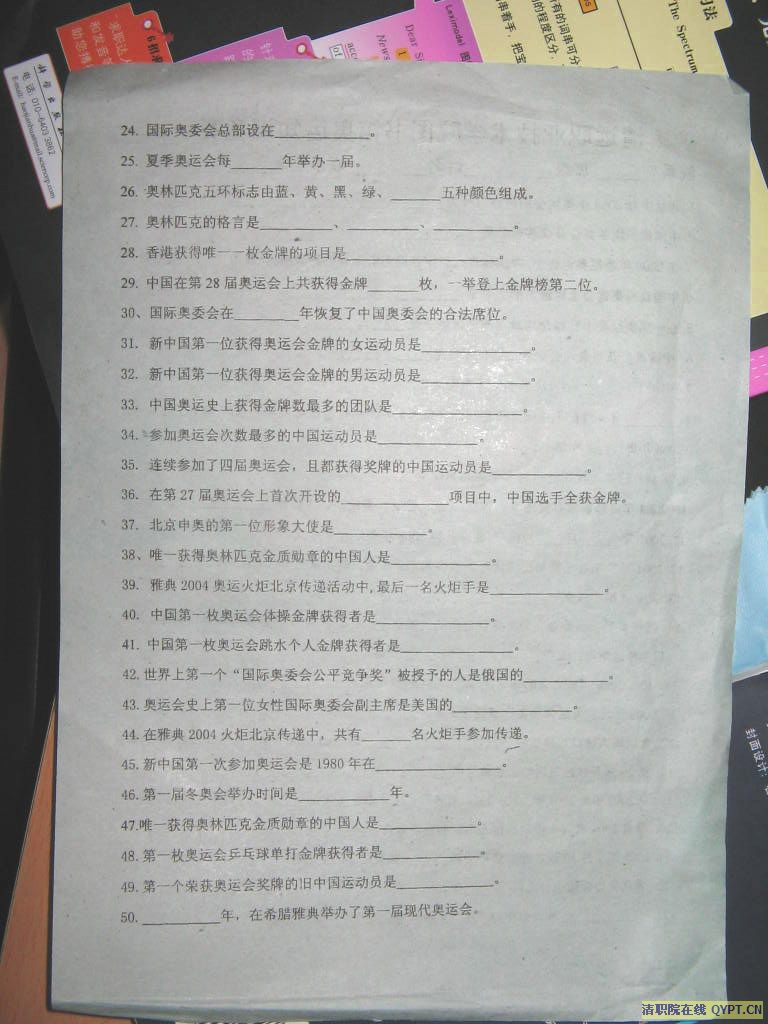 求职达人
和发音等
助您搏
科学出版社
电话:010-6403 3862
Dear Si
News
Leximodel
The Spectrum
24. 国际奥委会总部设在__________。
25. 夏季奥运会每______年举办一届。
26. 奥林匹克五环标志由蓝、黄、黑、绿、______五种颜色组成。
27. 奥林匹克的格言是________、________、________。
28. 香港获得唯一一枚金牌的项目是________________。
29. 中国在第28届奥运会上共获得金牌______枚，一举登上金牌榜第二位。
30、国际奥委会在_______年恢复了中国奥委会的合法席位。
31. 新中国第一位获得奥运会金牌的女运动员是____________。
32. 新中国第一位获得奥运会金牌的男运动员是____________。
33. 中国奥运史上获得金牌数最多的团队是______________。
34. 参加奥运会次数最多的中国运动员是___________。
35. 连续参加了四届奥运会，且都获得奖牌的中国运动员是__________。
36. 在第27届奥运会上首次开设的____________项目中，中国选手全获金牌。
37. 北京申奥的第一位形象大使是__________。
38、唯一获得奥林匹克金质勋章的中国人是___________。
39. 雅典2004奥运火炬北京传递活动中,最后一名火炬手是____________。
40. 中国第一枚奥运会体操金牌获得者是____________。
41. 中国第一枚奥运会跳水个人金牌获得者是____________。
42. 世界上第一个“国际奥委会公平竞争奖”被授予的人是俄国的_________。
43. 奥运会史上第一位女性国际奥委会副主席是美国的_____________。
44. 在雅典2004火炬北京传递中，共有______名火炬手参加传递。
45. 新中国第一次参加奥运会是1980年在______________。
46. 第一届冬奥会举办时间是__________年。
47.唯一获得奥林匹克金质勋章的中国人是___________。
48. 第一枚奥运会乒乓球单打金牌获得者是___________。
49. 第一个荣获奥运会奖牌的旧中国运动员是___________。
50. _________年，在希腊雅典举办了第一届现代奥运会。
封面设计:
清职院在线 QYPT.CN